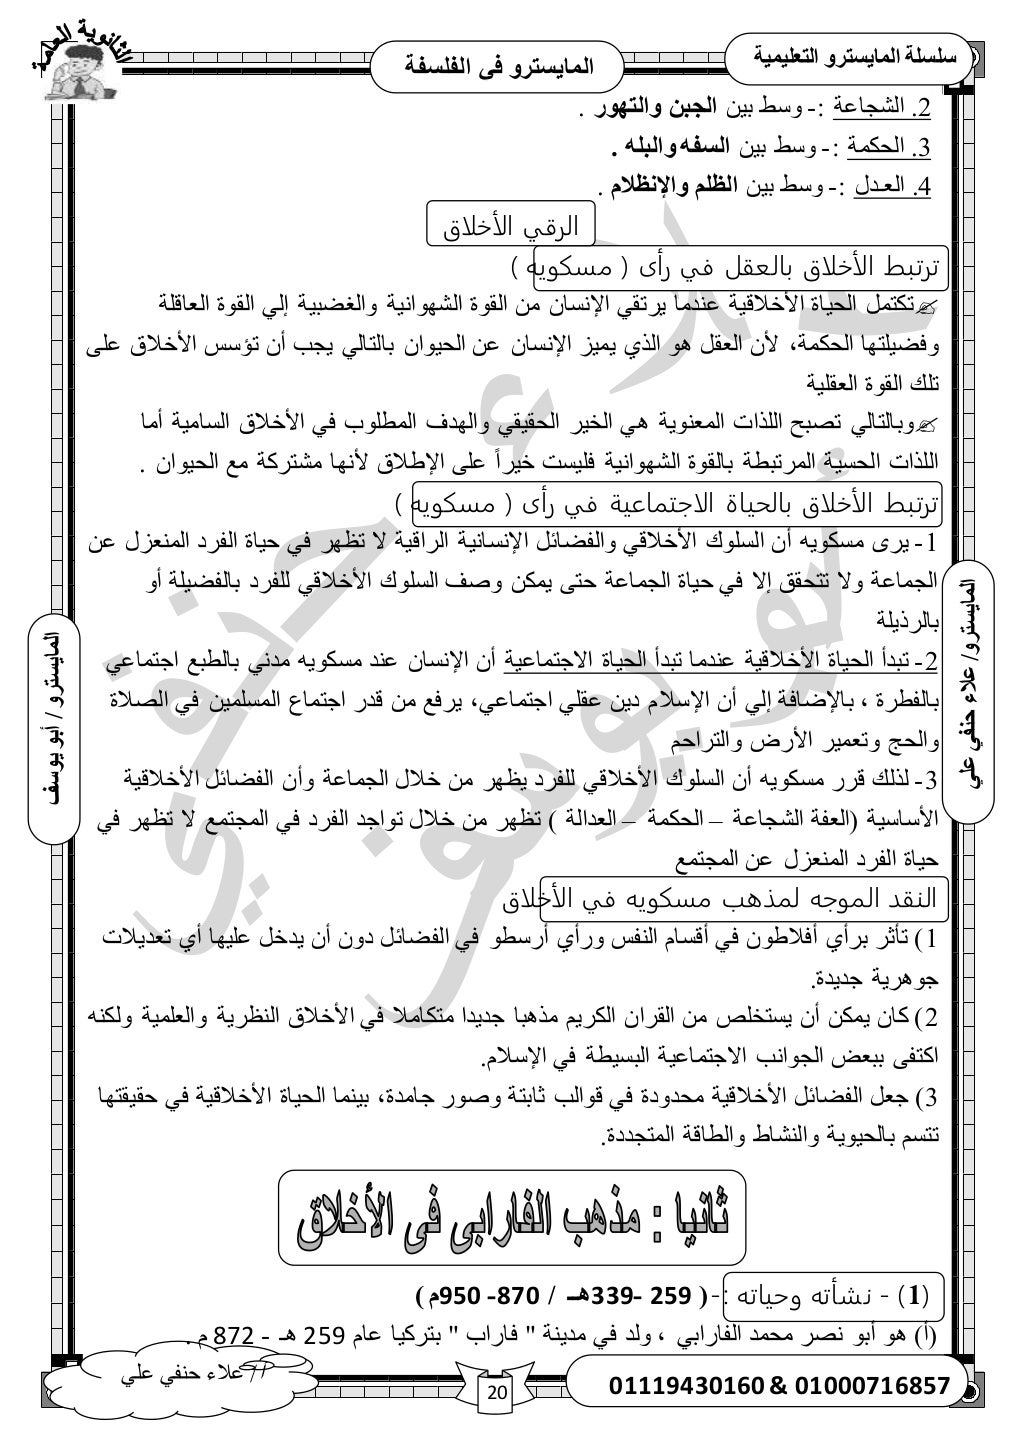 الثانوية العامة
المايسترو فى الفلسفة
سلسلة المايسترو التعليمية
2. الشجاعة :- وسط بين الجبن والتهور .
3. الحكمة :- وسط بين السفه والبله .
4. العدل :- وسط بين الظلم والإنظلام .
الرقي الأخلاق
ترتبط الأخلاق بالعقل في رأى ( مسكويه )
تكتمل الحياة الأخلاقية عندما يرتقي الإنسان من القوة الشهوانية والغضبية إلي القوة العاقلة
وفضيلتها الحكمة، لأن العقل هو الذي يميز الإنسان عن الحيوان بالتالي يجب أن تؤسس الأخلاق على
تلك القوة العقلية
وبالتالي تصبح اللذات المعنوية هي الخير الحقيقي والهدف المطلوب في الأخلاق السامية أما
اللذات الحسية المرتبطة بالقوة الشهوانية فليست خيراً على الإطلاق لأنها مشتركة مع الحيوان .
ترتبط الأخلاق بالحياة الاجتماعية في رأى ( مسكويه )
1- يرى مسكويه أن السلوك الأخلاقي والفضائل الإنسانية الراقية لا تظهر في حياة الفرد المنعزل عن
الجماعة ولا تتحقق إلا في حياة الجماعة حتى يمكن وصف السلوك الأخلاقي للفرد بالفضيلة أو
بالرذيلة
2- تبدأ الحياة الأخلاقية عندما تبدأ الحياة الاجتماعية أن الإنسان عند مسكويه مدني بالطبع اجتماعي
بالفطرة ، بالإضافة إلي أن الإسلام دين عقلي اجتماعي، يرفع من قدر اجتماع المسلمين في الصلاة
والحج وتعمير الأرض والتراحم
3- لذلك قرر مسكويه أن السلوك الأخلاقي للفرد يظهر من خلال الجماعة وأن الفضائل الأخلاقية
الأساسية (العفة الشجاعة – الحكمة – العدالة ) تظهر من خلال تواجد الفرد في المجتمع لا تظهر في
حياة الفرد المنعزل عن المجتمع
النقد الموجه لمذهب مسكويه في الأخلاق
1) تأثر برأي أفلاطون في أقسام النفس ورأي أرسطو في الفضائل دون أن يدخل عليها أي تعديلات
جوهرية جديدة.
2) كان يمكن أن يستخلص من القران الكريم مذهبا جديدا متكاملا في الأخلاق النظرية والعلمية ولكنه
اكتفى ببعض الجوانب الاجتماعية البسيطة في الإسلام.
3) جعل الفضائل الأخلاقية محدودة في قوالب ثابتة وصور جامدة، بينما الحياة الأخلاقية في حقيقتها
تتسم بالحيوية والنشاط والطاقة المتجددة.
ثانيا : مذهب الفارابى فى الأخلاق
(1) - نشأته وحياته :-( 259 -339هـ / 870- 950م )
(أ) هو أبو نصر محمد الفارابي ، ولد في مدينة " فاراب " بتركيا عام 259 هـ - 872 م .
المايسترو/ علاء حنفي علي
المايسترو / أبو يوسف
أ / علاء حنفي علي
20
01119430160 & 01000716857